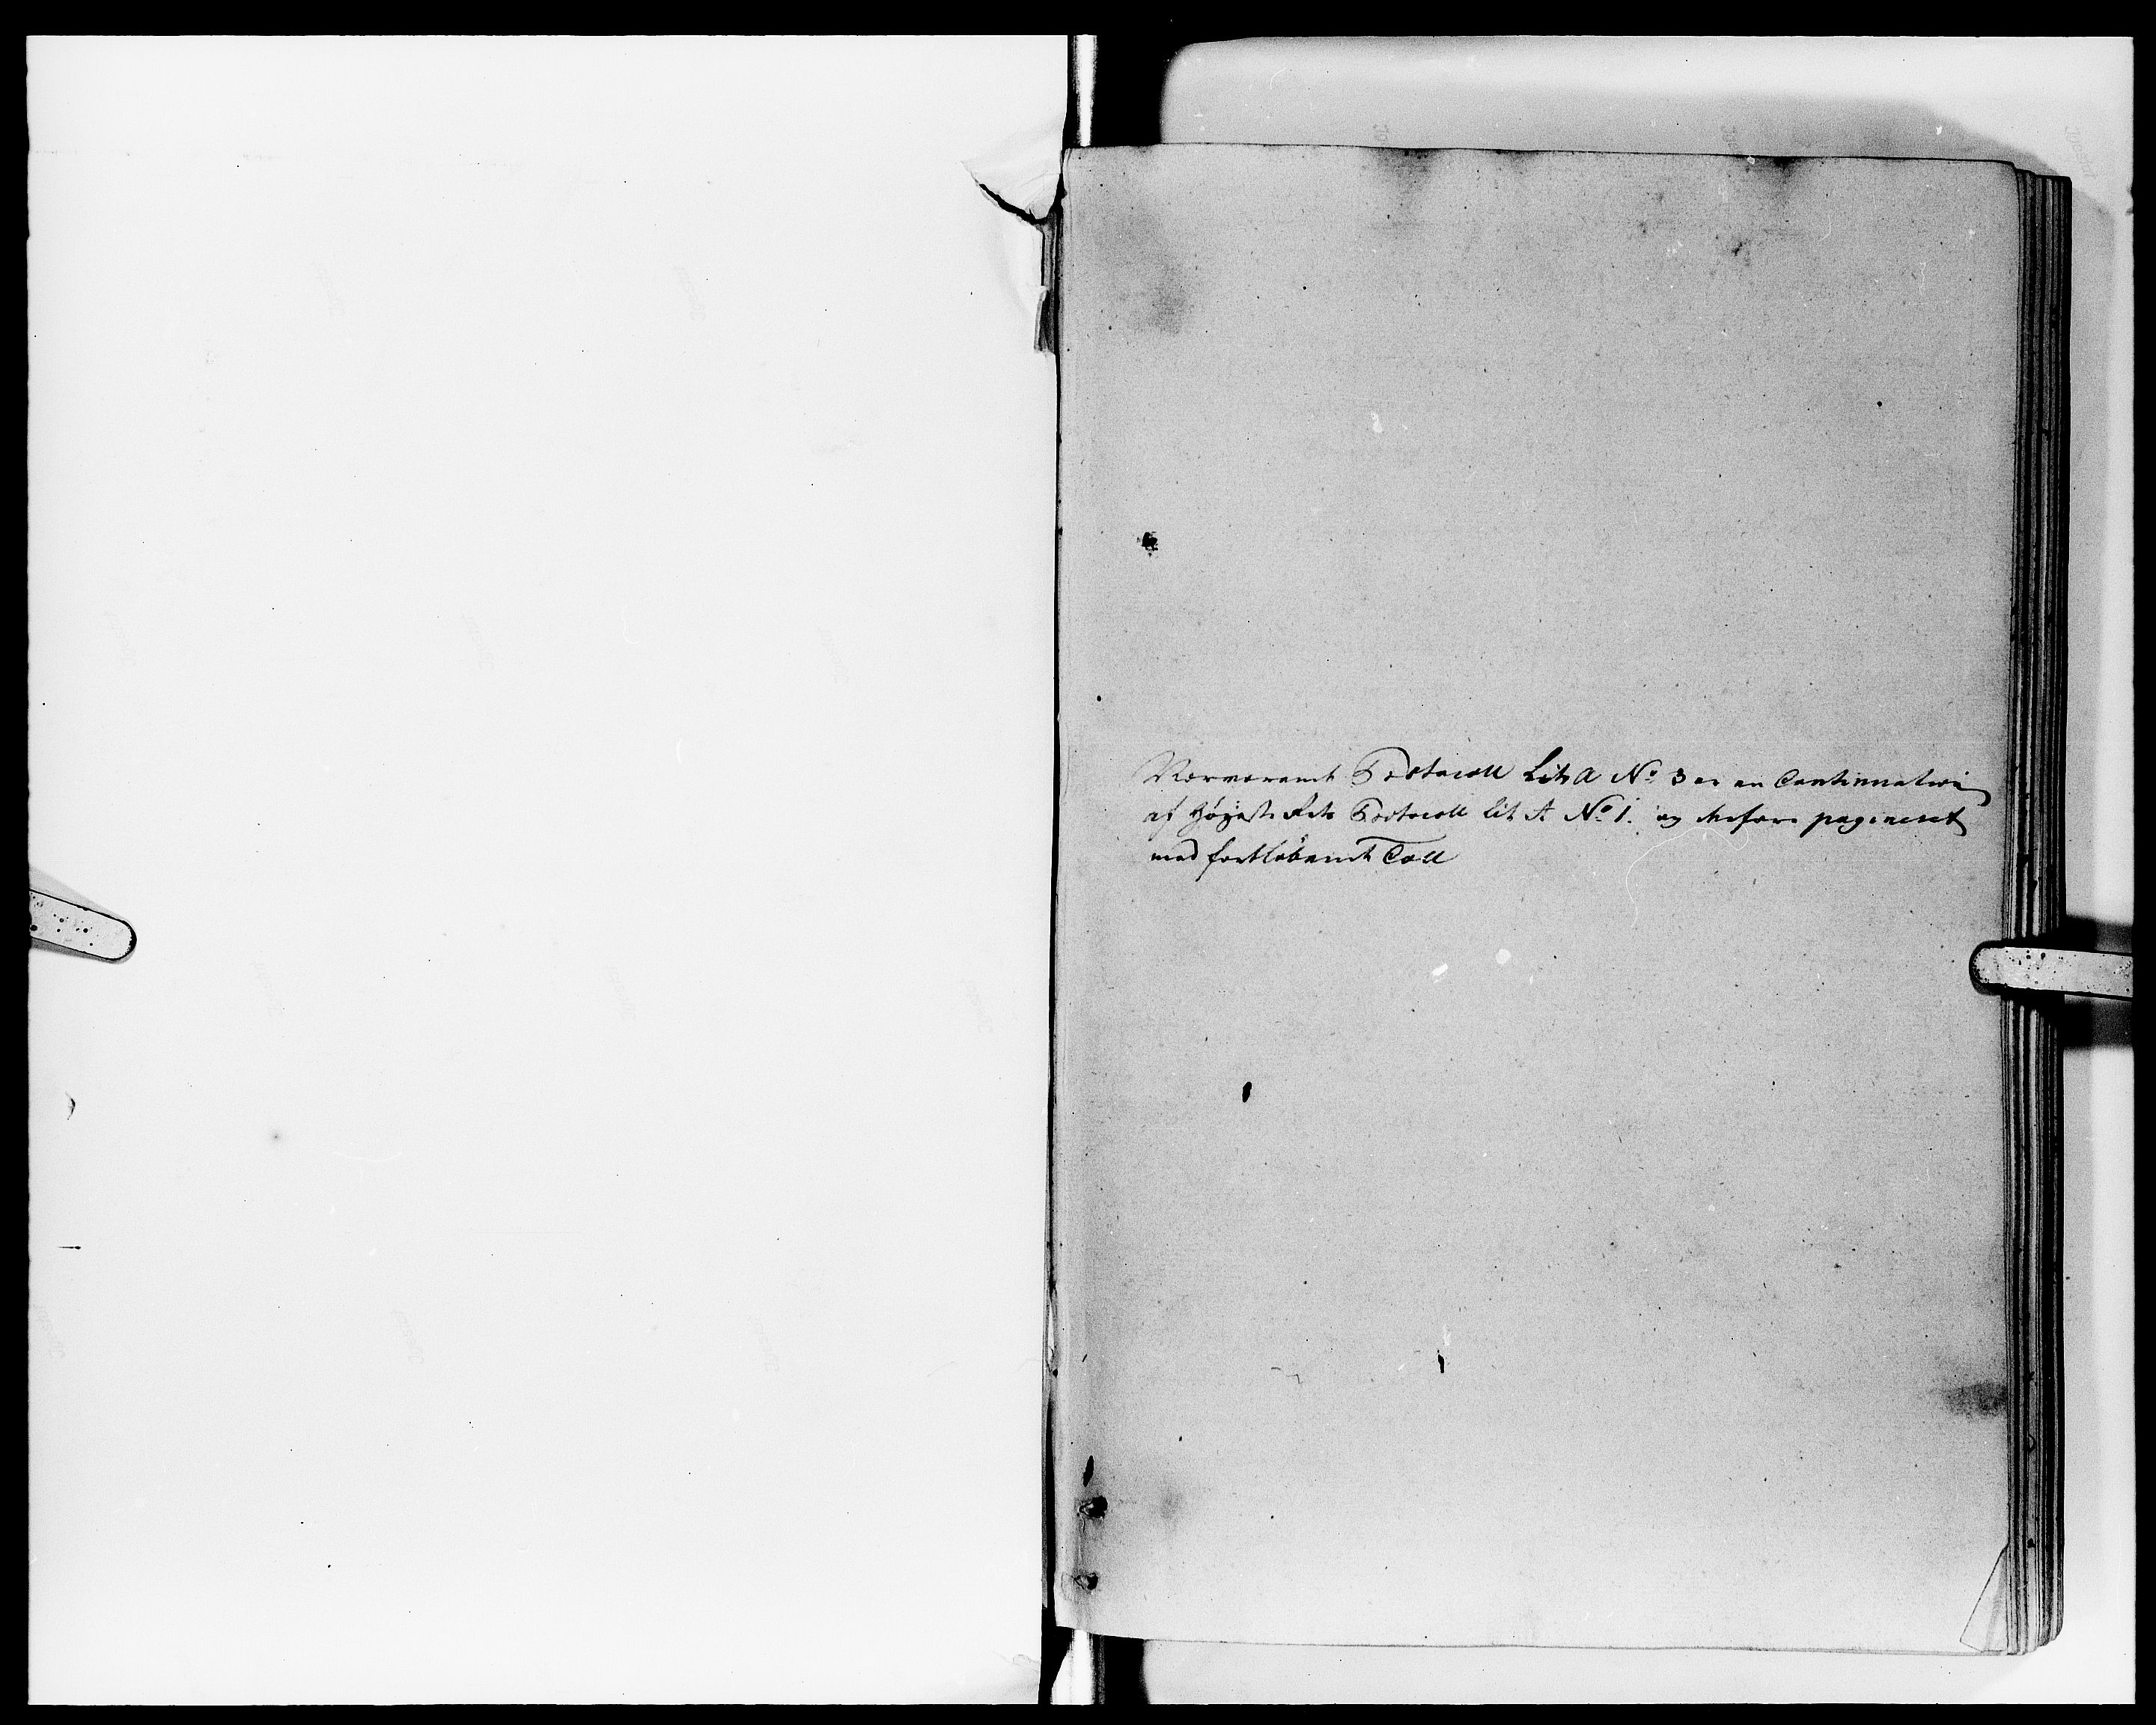 Nærværende Protocoll Lit A No 3 er en Continuation
af Højeste Rets Protocoll Lit A No 1. og derfor pagineret
med fortløbende Tall